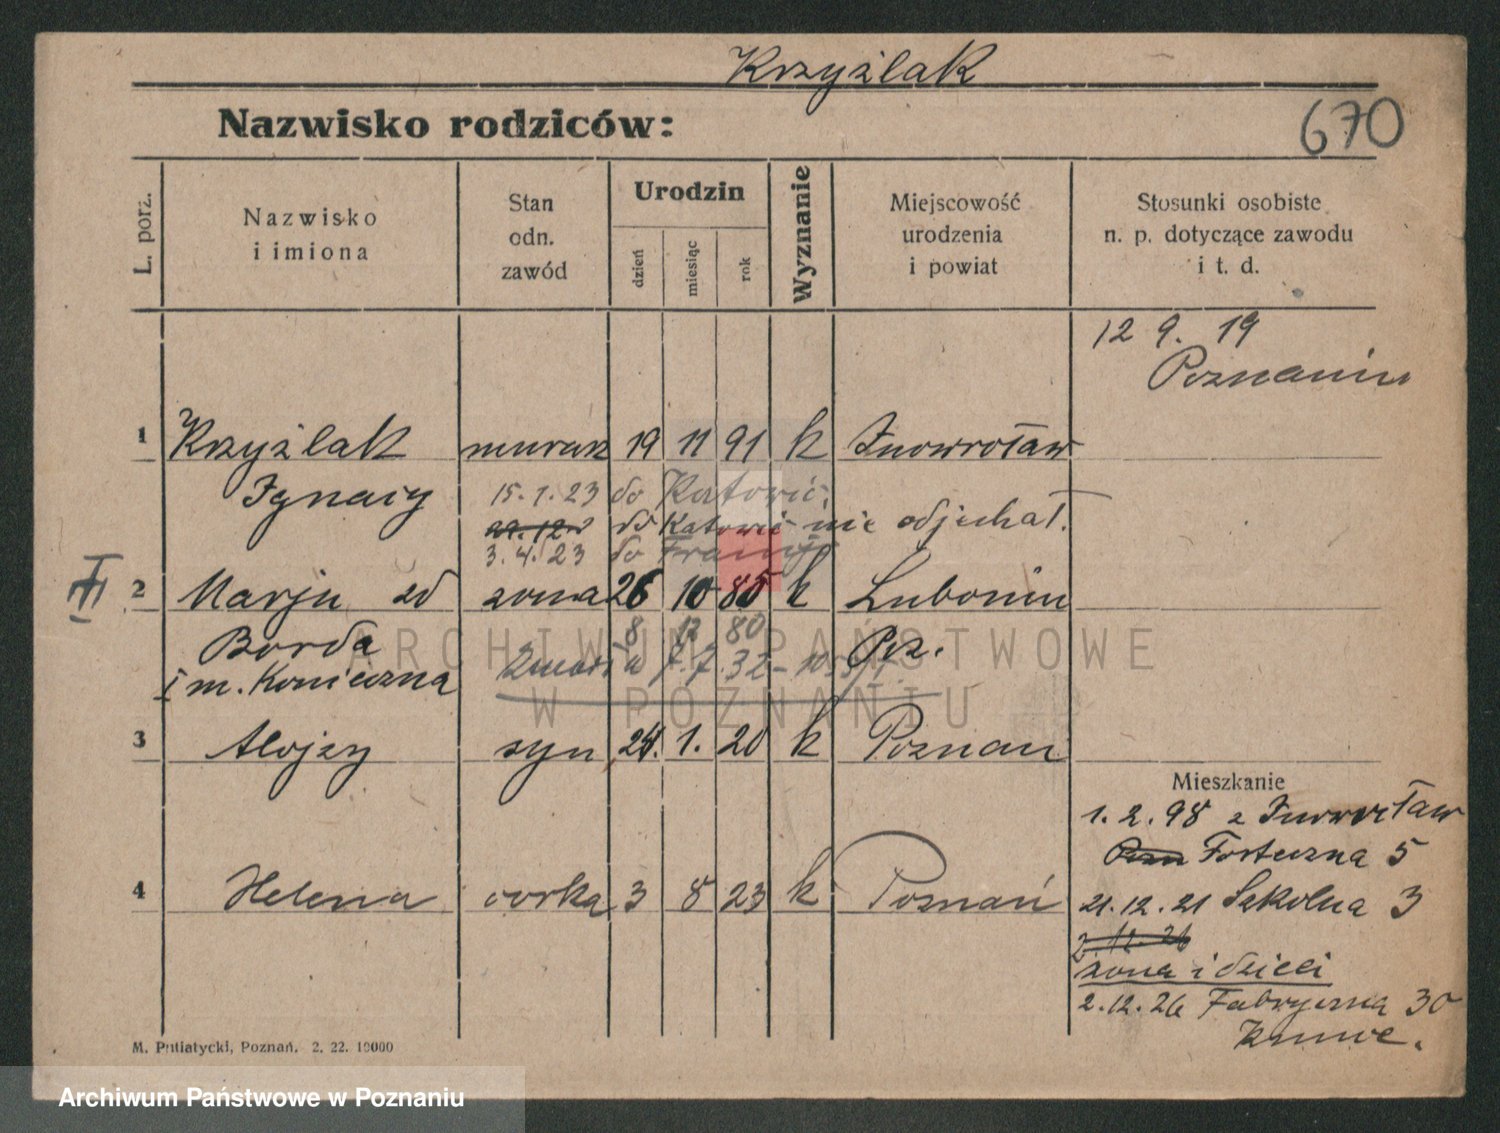 Krzyżlak
Nazwisko rodziców:
670
L. porz.
Nazwisko
i imiona
Stan
odn.
zawód
Urodzin
dzień
miesiąc
rok
Wyznanie
Miejscowość
urodzenia
i powiat
Stosunki osobiste
n. p. dotyczące zawodu
i t. d.
12 9. 19
Poznaniu
1 Krzyżlak murarz 19 11 91 k Inowrocław
Ignacy 15. 1. 23 do Katowic
do Katowic nie odjechał.
3. 4. 23 do Francji
III
2 Marja zd żona 26 10 85 k Luboniu
8 12 80
Borda Poz.
I m. Konieczna 7. 7. 32
3 Alojzy syn 24. 1. 20 k Poznań
Mieszkanie
1. 2. 98 z Inowrocław
Forteczna 5
4 Helena córka 3 8 23 k Poznań
21. 12. 21 Szkolna 3
żona i dzieci
2. 12. 26 Fabryczna 30
M. Putiatycki, Poznań. 2. 22. 10000
ARCHIWUM PAŃSTWOWE
W POZNANIU
Archiwum Państwowe w Poznaniu